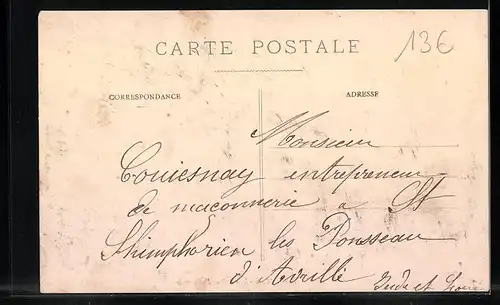 CARTE POSTALE
13€
CORRESPONDANCE
ADRESSE
Monsieur
Couiesnay entrepreneur
de maconnerie a St
Shimphorien les Ponsseau
d'Avrillé Indre et Loire